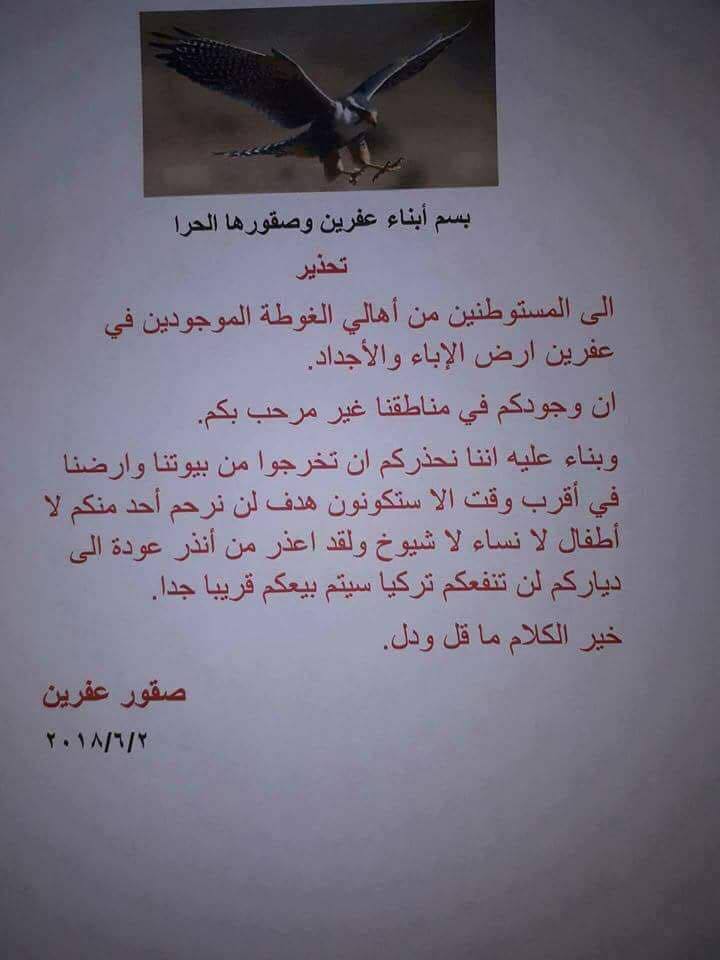 بسم أبناء عفرين وصقورها الحرا
تحذير
الى المستوطنين من أهالي الغوطة الموجودين في
عفرين ارض الإباء والأجداد.
ان وجودكم في مناطقنا غير مرحب بكم.
وبناء عليه اننا نحذركم ان تخرجوا من بيوتنا وارضنا
في أقرب وقت الا ستكونون هدف لن نرحم أحد منكم لا
أطفال لا نساء لا شيوخ ولقد اعذر من أنذر عودة الى
دياركم لن تنفعكم تركيا سيتم بيعكم قريبا جدا.
خير الكلام ما قل ودل.
صقور عفرين
٢٠١٨/٦/٢